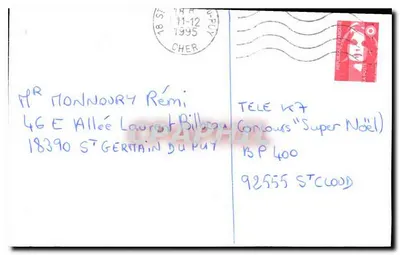 18 ST
PUY
11-12
1995
CHER
Mr MONNOURY Rémi
46 E Allée Laurent
18390 ST GERMAIN DU PUY
TELE K7
Concours "Super Noël)
BP 400
92555 ST CLOUD